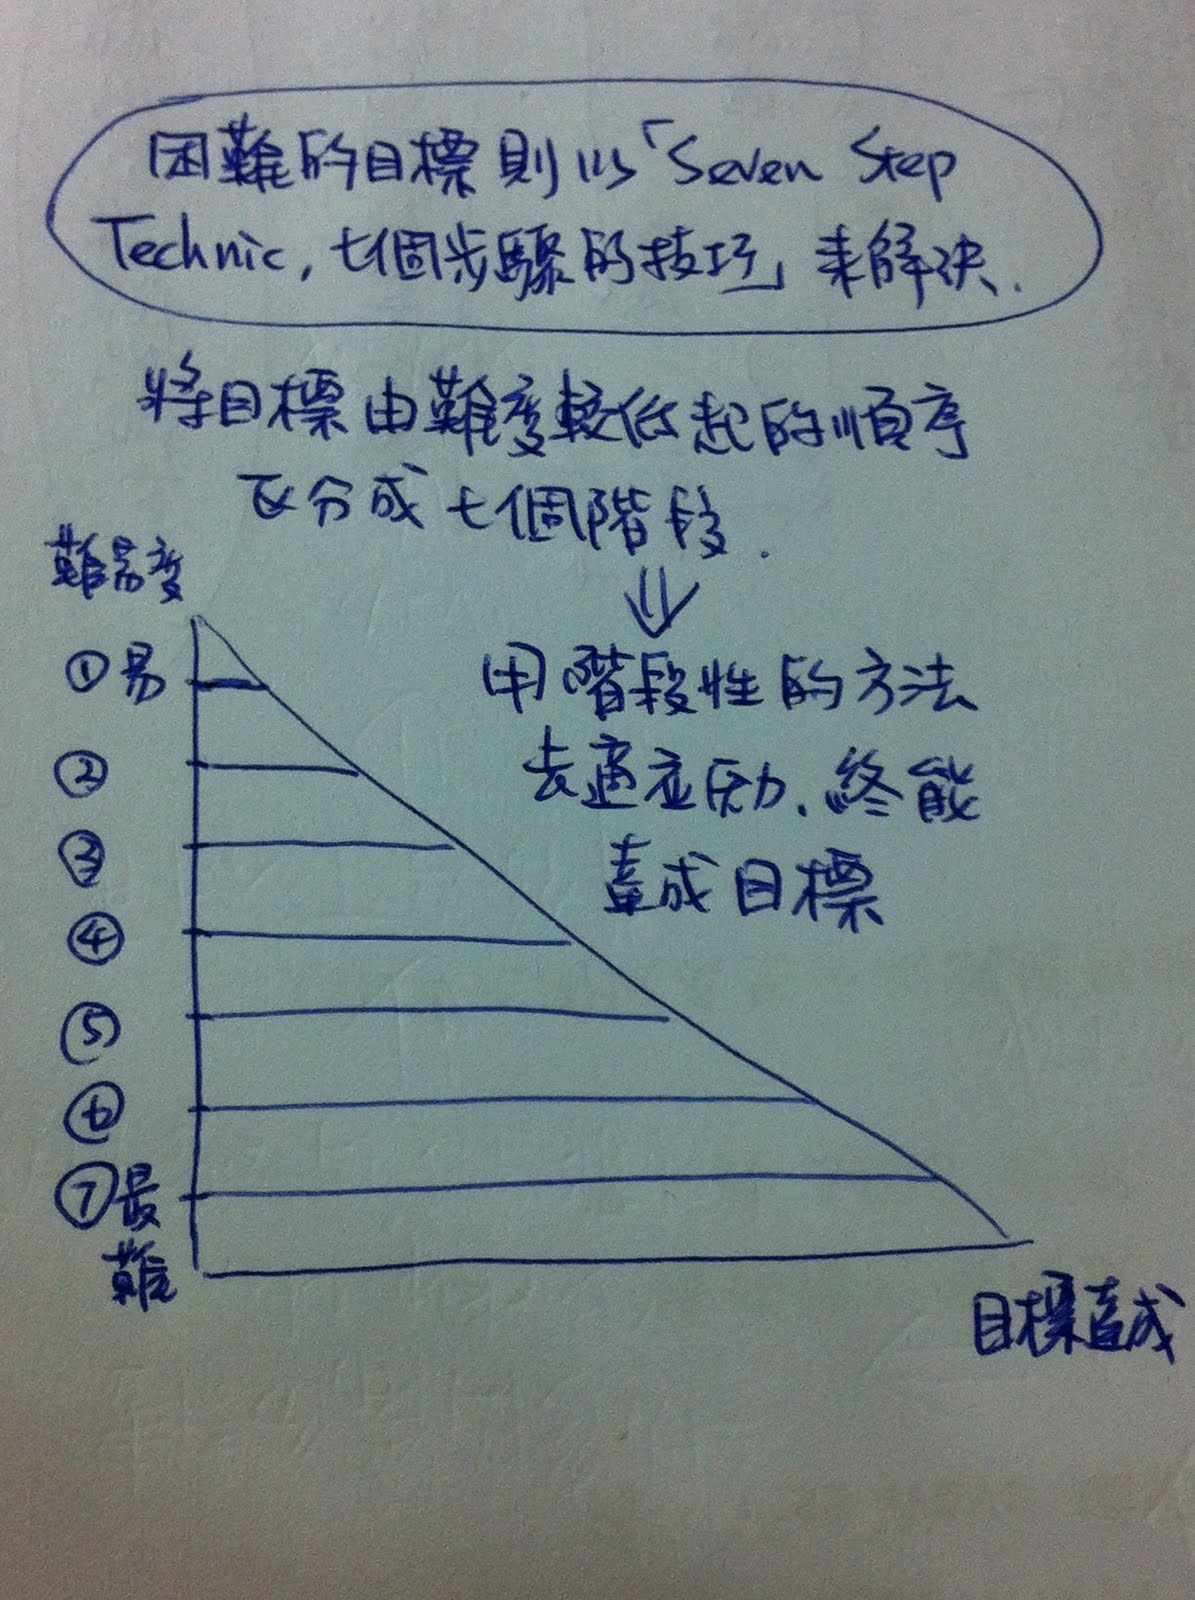 困難的目標則以「Seven Step
Technic, 七個步驟的技巧」來解決.
將目標由難度較低起的順序
区分成七個階段.
難易度
①易
用階段性的方法
②
去適应励, 終能
③
達成目標
④
⑤
⑥
⑦最
難
目標達成